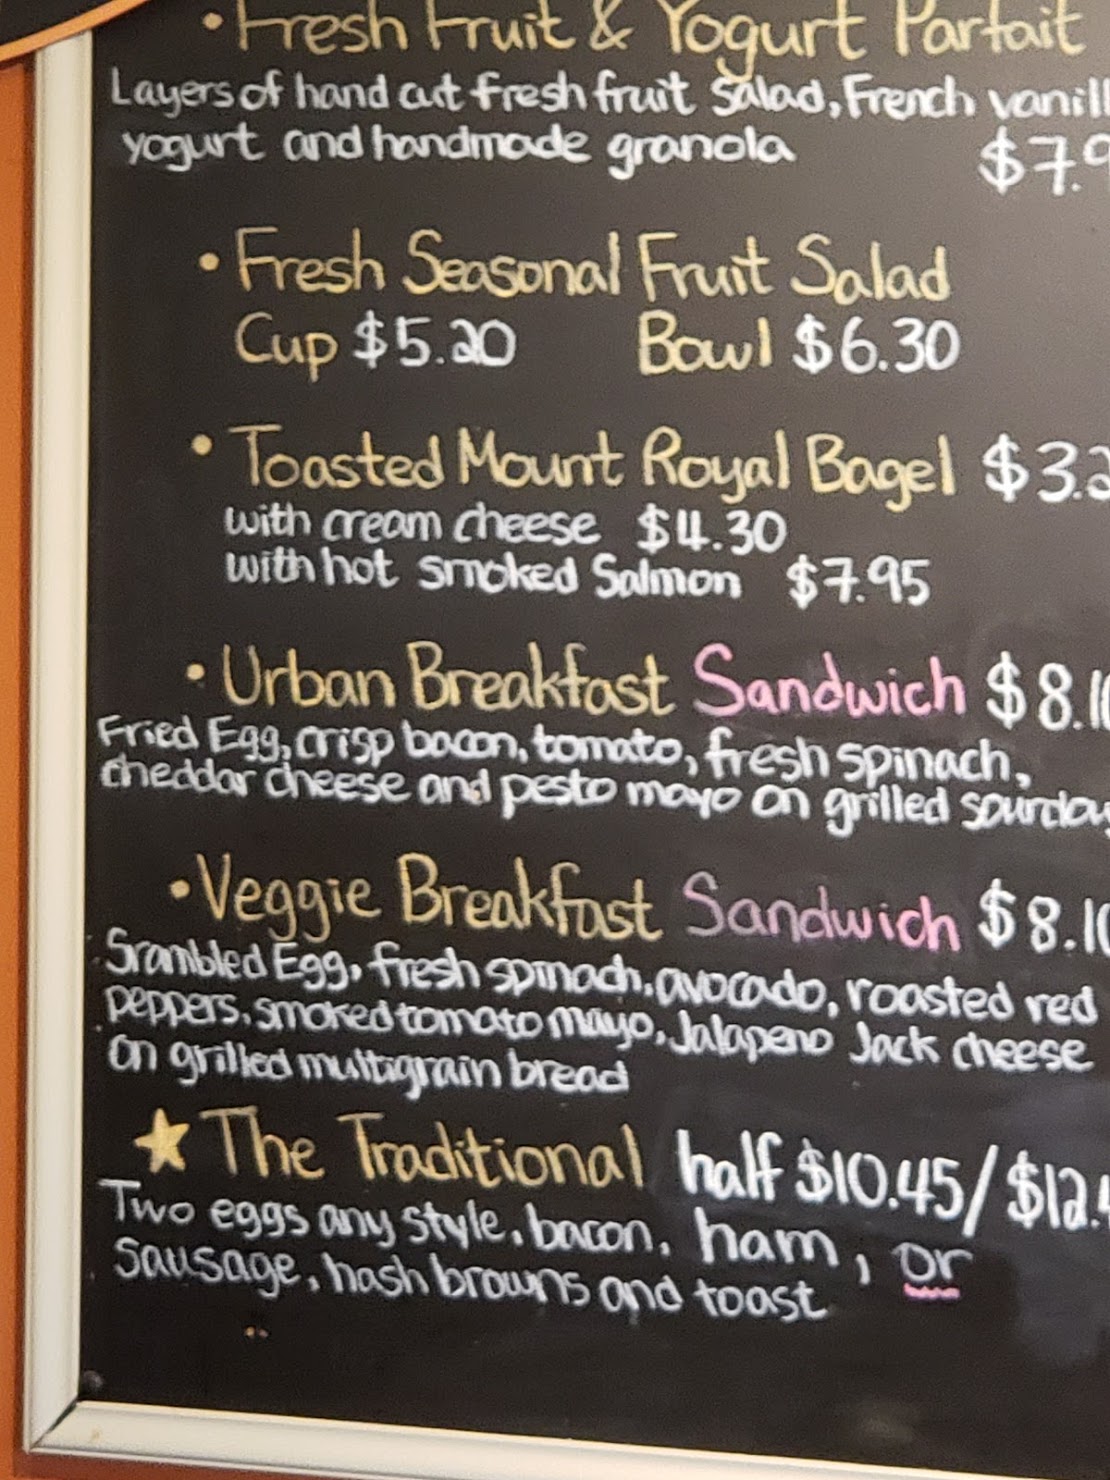 • Fresh Fruit & Yogurt Parfait
Layers of hand cut fresh fruit Salad, French vanill
yogurt and handmade granola $7.9
• Fresh Seasonal Fruit Salad
Cup $5.20 Bowl $6.30
• Toasted Mount Royal Bagel $3.2
with cream cheese $4.30
with hot smoked Salmon $7.95
• Urban Breakfast Sandwich $8.10
Fried Egg, crisp bacon, tomato, fresh spinach,
cheddar cheese and pesto mayo on grilled sourdou
• Veggie Breakfast Sandwich $8.10
Srambled Egg, fresh spinach, avocado, roasted red
peppers, smoked tomato mayo, Jalapeno Jack cheese
on grilled multigrain bread
★ The Traditional half $10.45/$12.
Two eggs any style, bacon, ham, or
sausage, hash browns and toast